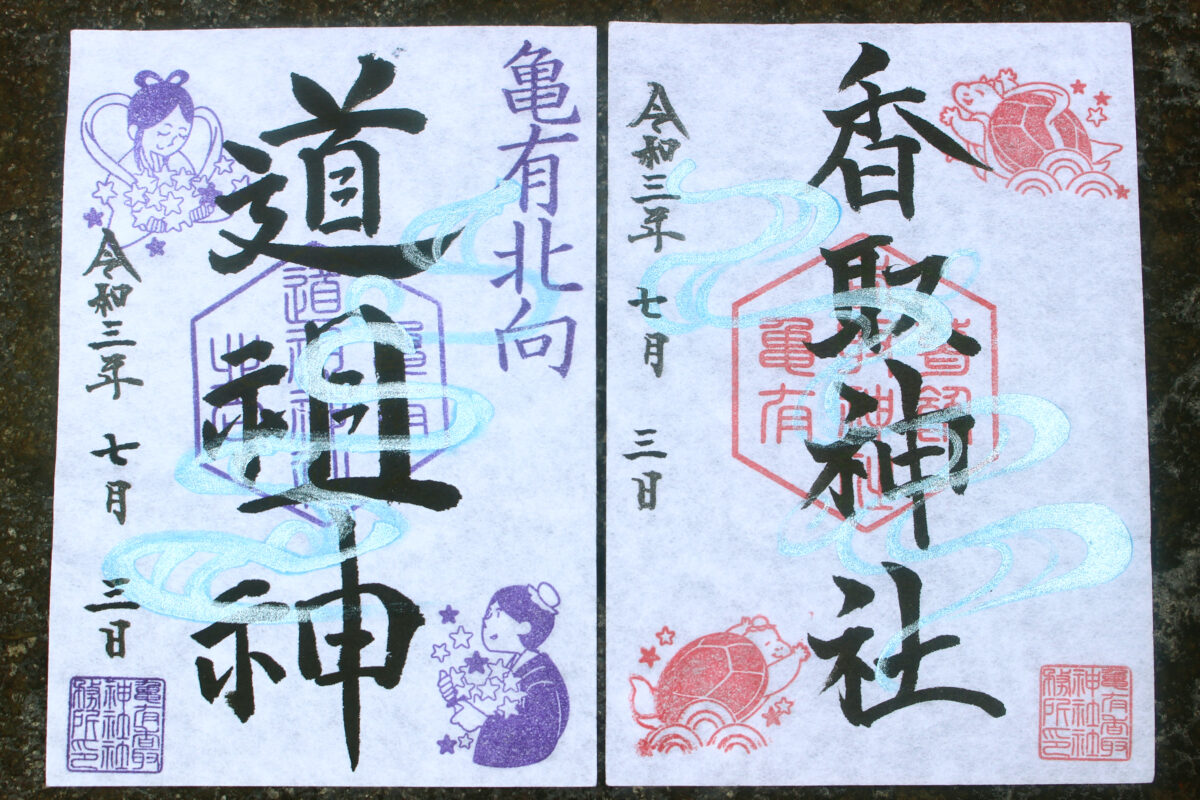 香取神社
令和三年 七月 三日
亀有
亀有香取
神社社
務所印
亀有北向
道祖神
令和三年 七月 三日
亀有香取
神社社
務所印